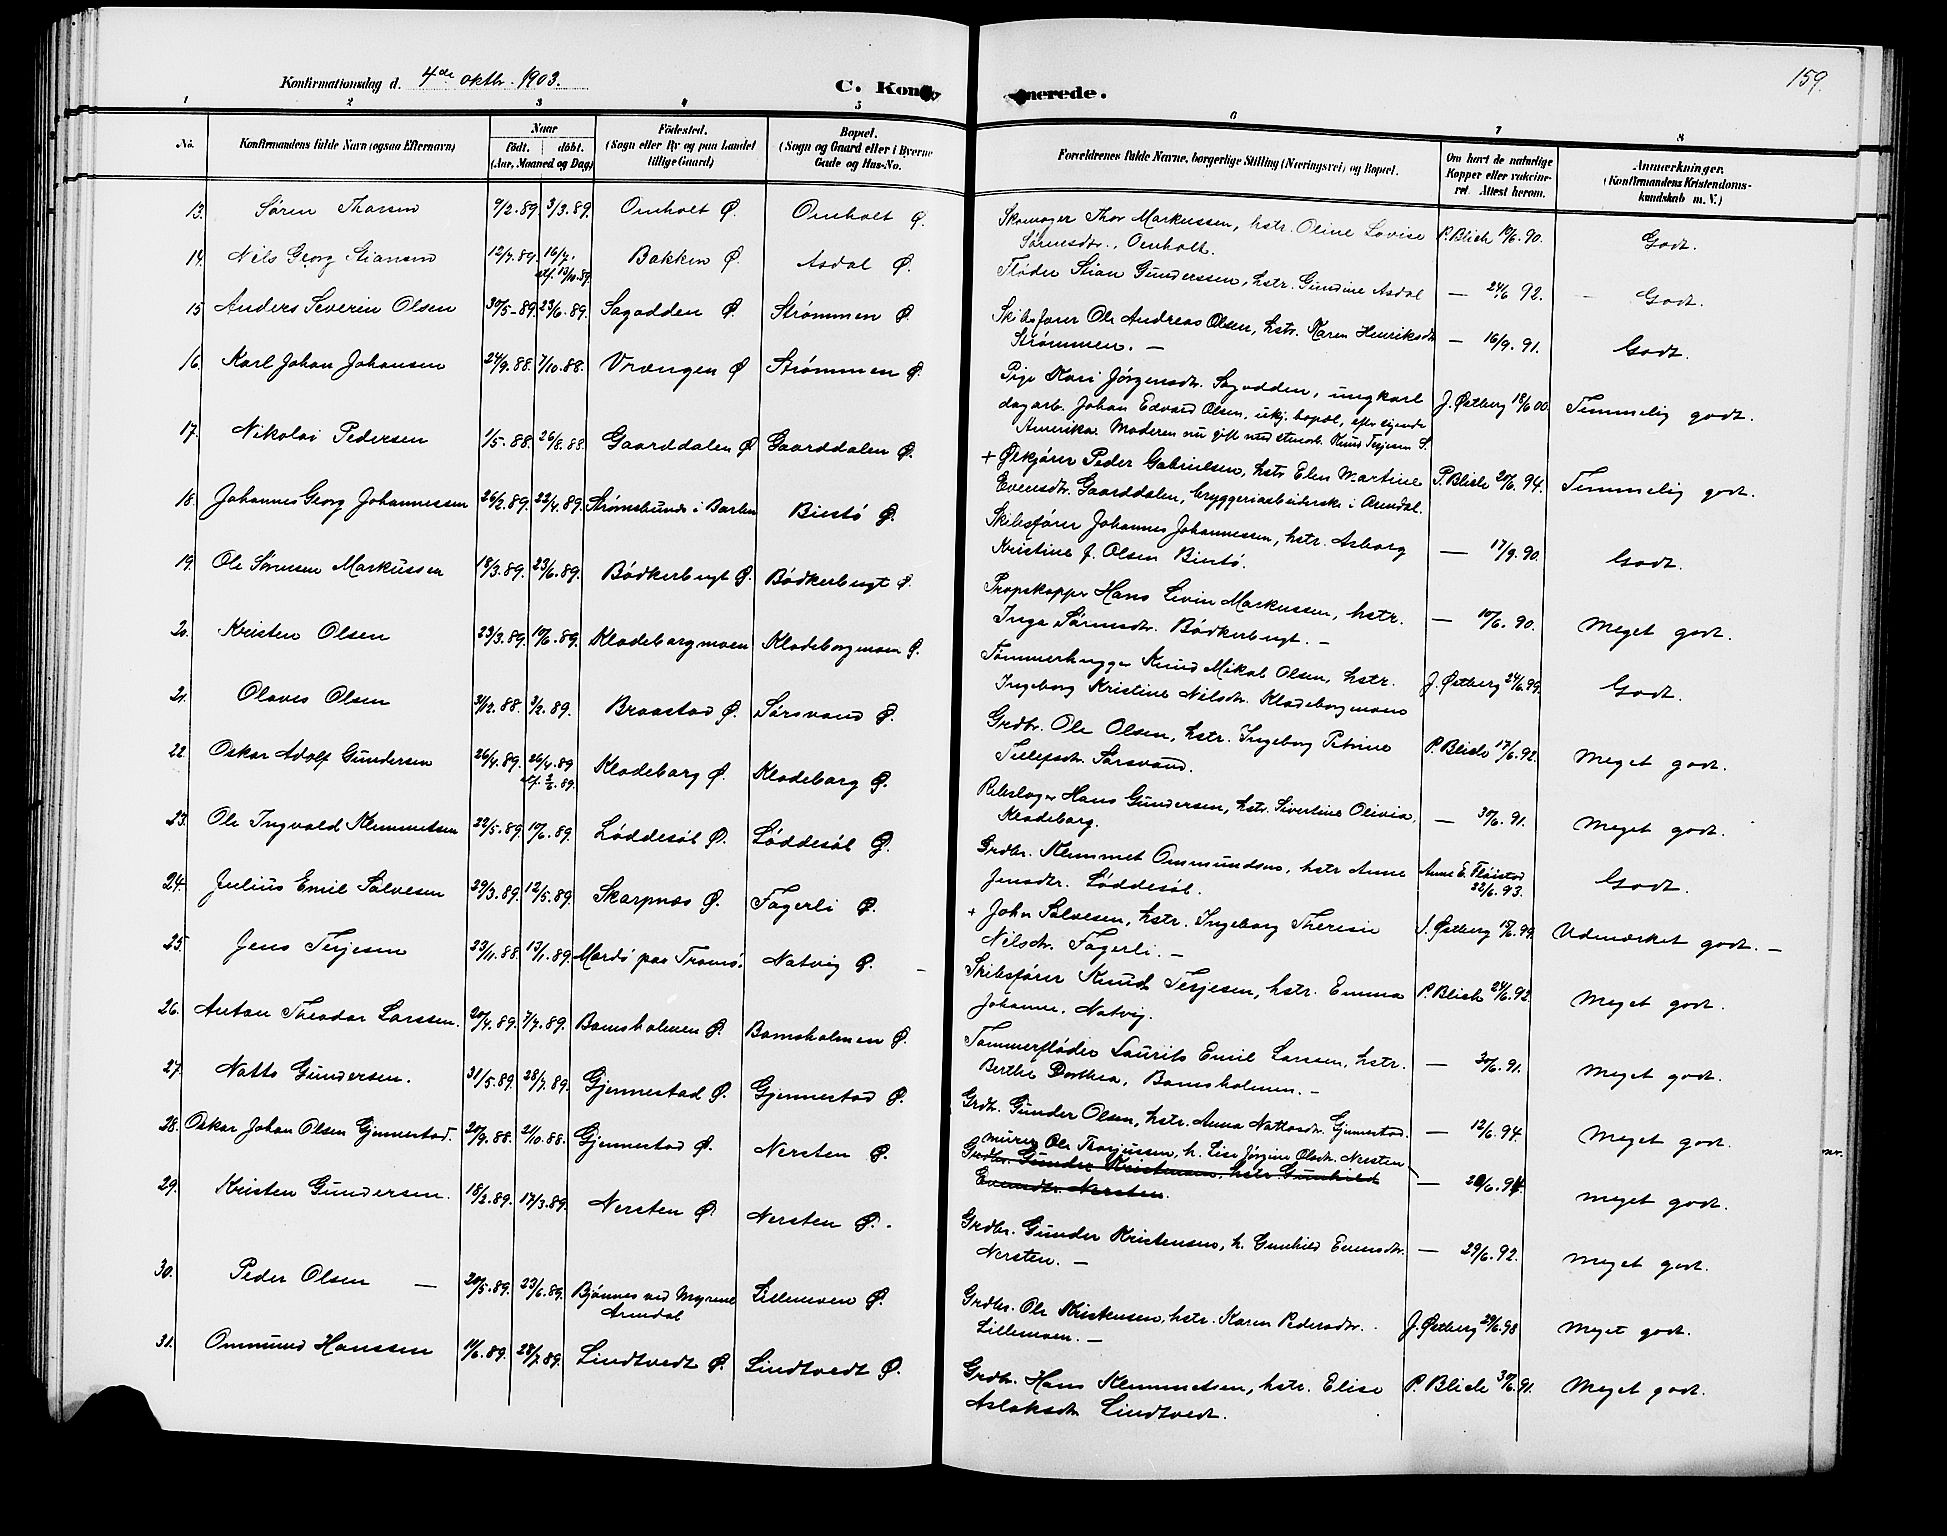 Konfirmationsdag d. 4de oktbr. 1903.
C. Kon
nerede.
159.
1 2 3 4 5 6 7 8
No. Konfirmandens fulde Navn (ogsaa Efternavn) Naar født. døbt. (Aar, Maaned og Dag) Fødested. (Sogn eller By og paa Landet tillige Gaard) Bopæl. (Sogn og Gaard eller i Byerne Gade og Hus-No. Forældrenes fulde Navne, borgerlige Stilling (Næringsvei) og Bopæl. Om havt de naturlige Kopper eller vaccineret. Attest herom. Anmærkninger. (Konfirmandens Kristendomskundskab m. V.)
13. Søren Thorsen 9/2.89. 3/3.89. Omholt Ø. Omholt Ø. Skomager Thor Markussen, hstr. Oline Lovise P. Blich 10/6.90. Godt.
Sørensdtr., Omholt.
14. Nils Georg Stiansen 12/7.89. 16/7. Bakken Ø. Asdal Ø. Fløder Stian Gunderssen, hstr. Gundine Asdal — 24/6 92. Godt.
13/10.89.
15 Anders Severin Olsen 30/5-89 23/6.89. Sagodden Ø. Strømmen Ø. Skibsfører Ole Andreas Olsen, hstr. Karen Henriksdtr — 16/9.91. Godt.
Strømmen. —
16. Karl Johan Johansen 24/9.88. 7/10.88. Vrængen Ø Strømmen Ø. Pige Kari Jörgensdtr. Sagodden, ungkarl J. Østberg 18/6 00. Temmelig godt.
dagarb. Johan Edvard Olsen, ukj. bopæl, efter sigende
Amerika. Moderen nu gift med stenarb. Knud Terjesen S.
17. Nikolai Pedersen 1/5.88. 26/8.88. Gaarddalen Ø Gaarddalen Ø. + Ølkjører Peder Gabrielsen, hstr Elen Martine P. Blich 20/6.94. Temmelig godt.
Evensdtr. Gaarddalen, bryggeriarbeiderske i Arendal.
18. Johannes Georg Johannessen 26/2.89. 22/4.89. Strømsbunds i Barbu Biestø Ø. Skibsfører Johannes Johannessen, hstr. Asborg — 17/9.90. Godt.
Kristine f. Olsen Biestø.
19. Ole Sørensen Markussen 18/3.89. 23/6.89. Bødkerbugt Ø. Bødkerbugt Ø. Propskapper Hans Levin Markussen, hstr. — 10/6.90. Meget godt.
Inga Sørensdtr. Bødkerbugt. —
20. Kristen Olsen 23/3.89. 10/6.89. Kladeborgmoen Kladeborgmoen Ø. Tømmerhugger Knud Mikal Olsen, hstr. J. Østberg 24/6.99. Godt.
Ingeborg Kristine Nilsdtr. Kladeborgmoens
21. Olaves Olsen 31/12.88. 3/2.89. Braastad Ø. Sørsvand Ø. Grdbr. Ole Olsen, hstr. Ingeborg Petrine P. Blich 17/6.92. Meget godt.
Tellefsdtr. Sørsvand.
22. Oskar Adolf Gundersen 26/4.89. 26/4.89 Kladeborg Ø. Kladeborg Ø. Rebslager Hans Gundersen, hstr. Sivertine Olivia, — 30/6.91. Meget godt.
Kladeborg.
23. Ole Ingvald Klemmetsen 22/5.89. 10/6.89. Løddesøl Ø. Løddesøl Ø. Grdbr. Klemmet Ommundsens, hstr Anne Anne E. Fløistad 22/6.93. Godt.
Jensdtr. Løddesøl.
24. Julius Emil Salvesen 29/3.89. 12/5.89. Skarpnæs Ø. Fagerli Ø. + John Salvesen, hstr. Ingeborg Theresie J. Østberg 15/6.99. Udmærket godt. —
Nilsdtr. Fagerli. —
25. Jens Terjesen 23/11.88. 13/1.89. Mardø paa Tromø. Natvig Ø. — Skibsfører Knud Terjesen, hstr. Emma P. Blich 24/6.92. Meget godt.
Johanne, Natvig.
26. Anton Theodor Larssen. 20/4.89. 7/7.89. Bomsholmen Ø. Bomsholmen Ø. Tømmerfløder Laurits Emil Larsen, hstr. — 30/6.91. Meget godt.
Berthe Dorthea, Bomsholmen. —
27. Natto Gundersen. 31/5.89. 28/7.89. Gjennestad Ø. Gjennestad Ø. Grdb. Gunder Olsen, hstr. Anna Nattosdtr. Gjennestad. — 12/6.94. Meget godt.
28. Oskar Johan Olsen Gjennestad. 20/9.88. 21/10.88. Gjennestad Ø. Nersten Ø. murer Ole Thorjussen, h. Lise Jørgine Olsdtr. Nersten — 20/6.94. Meget godt.
Grdbr. Gunder Kristensen, hstr Gunhild
Evensdtr. Nersten.
29. Kristen Gundersen. 18/2.89. 17/3.89. Nersten Ø. Nersten Ø. Grdbr. Gunder Kristensen, h. Gunhild Evensdtr. — 29/6.92. Meget godt.
Nersten. —
30. Peder Olsen — 20/5.89. 23/6.89. Bjønnes ved Myrene Arendal Lillemoen Ø. Grdbr. Ole Kristensen, hstr. Karen Pedersdtr. J. Østberg 29/6.98 Meget godt.
Lillemoen. —
31. Ommund Hanssen 11/6.89. 28/7.89. Lindtvedt Ø. Lindtvedt Ø. Grdbr. Hans Klemmetsen, hstr. Elise P. Blich 30/6.91. Meget godt.
Aslaksdtr Lindtvedt.